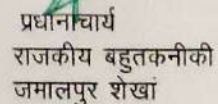 प्रधानाचार्य
राजकीय बहुतकनीकी
जमालपुर शेखां